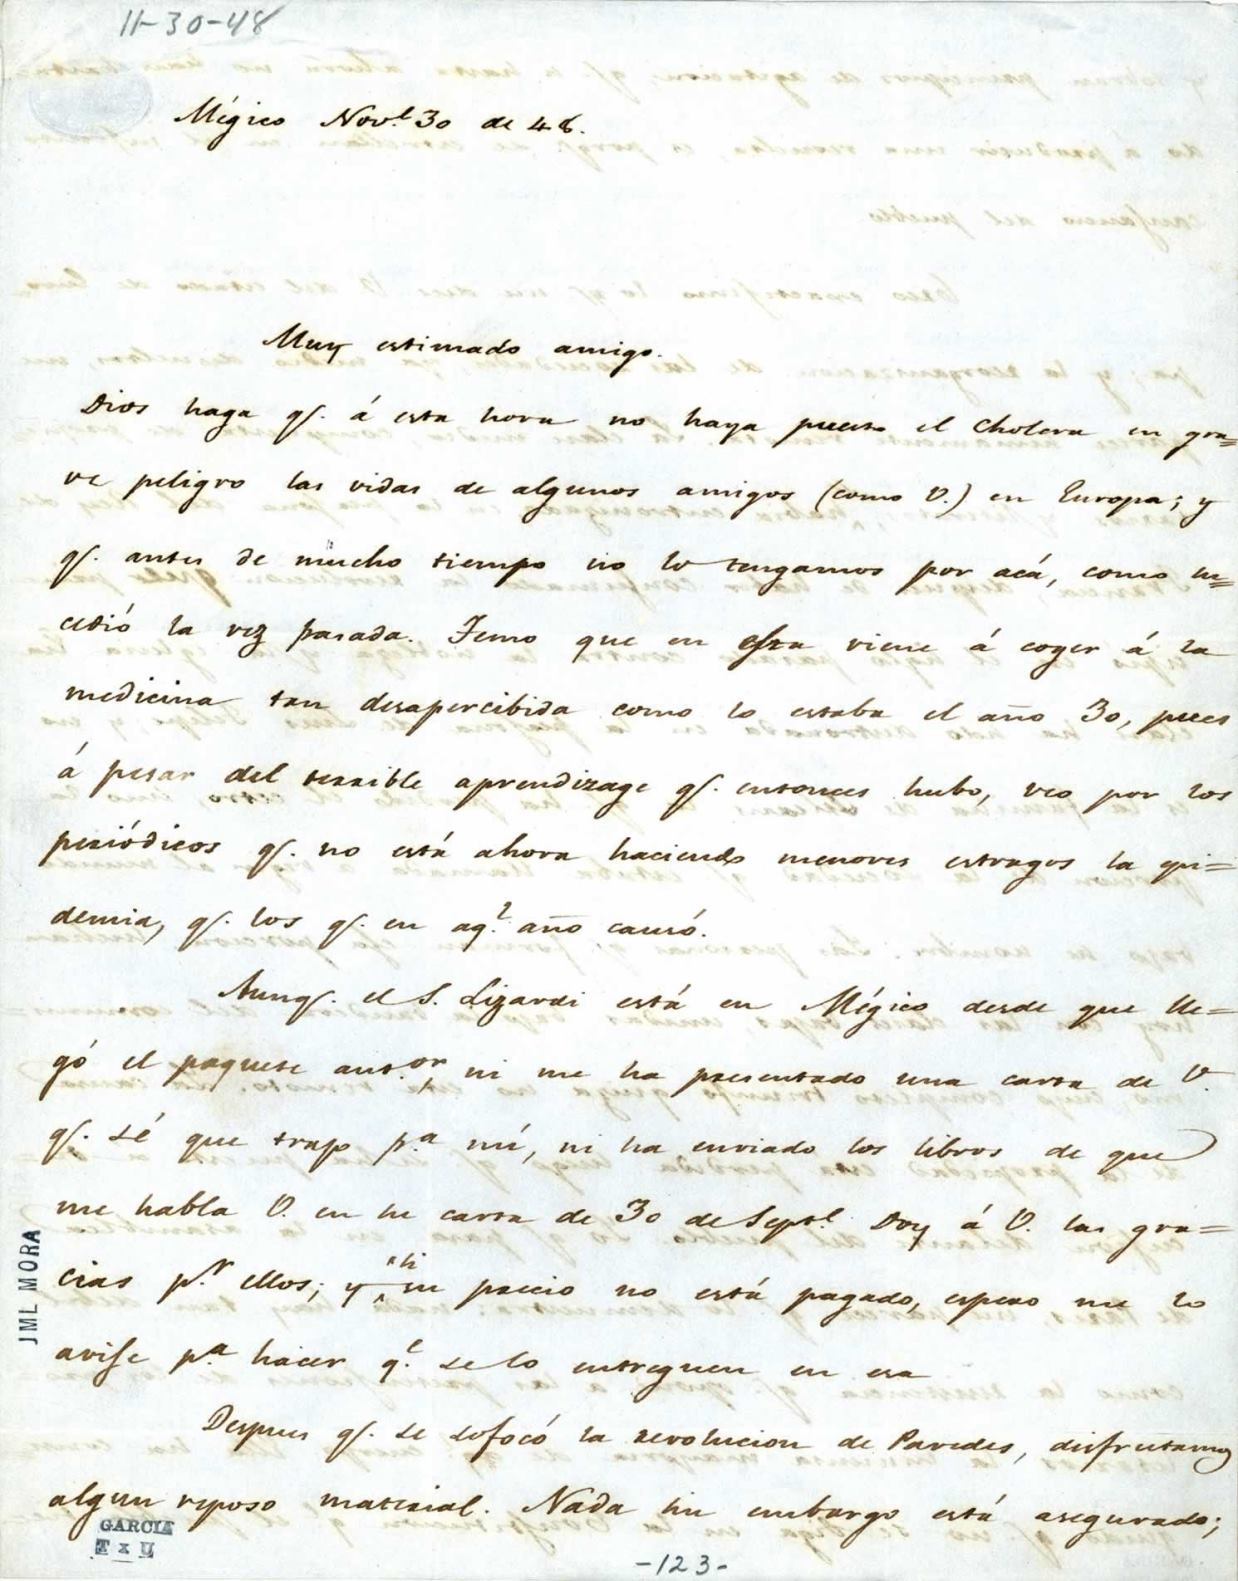 11-30-48
Mégico Nov.e 30 de 48.
Muy estimado amigo.
Dios haga qe. á esta hora no haya puesto el Cholera en gra=
ve peligro las vidas de algunos amigos (como V.) en Europa; y
qe. antes de mucho tiempo no lo tengamos por acá, como su=
cedió la vez pasada. Temo que en esta viene á coger á la
medicina tan desapercibida como lo estaba el año 30, pues
á pesar del terrible aprendizage qe. entonces hubo, veo por los
periódicos qe. no está ahora haciendo menores estragos la epi=
demia, qe. los qe. en aq.l año causó.
Aunqe. el S. Lizardi está en Mégico desde que lle=
gó el paquete ant.or, ni me ha presentado una carta de V.
qe. sé que trajo p.a mí, ni ha enviado los libros de que
me habla V. en su carta de 30 de Sept.e Doy á V. las gra=
cias p.r ellos; y si su precio no está pagado, espero me lo
avise p.a hacer q.e se lo entreguen en esa
Despues qe. se sofocó la revolucion de Paredes, disfrutamos
algun reposo material. Nada sin embargo está asegurado;
JML MORA
GARCIA
T x U
-123-